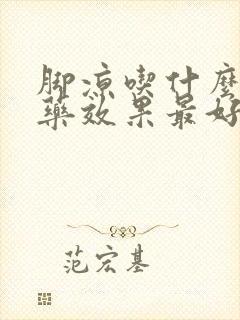 脚凉喫什麼
藥效果最好
范宏基